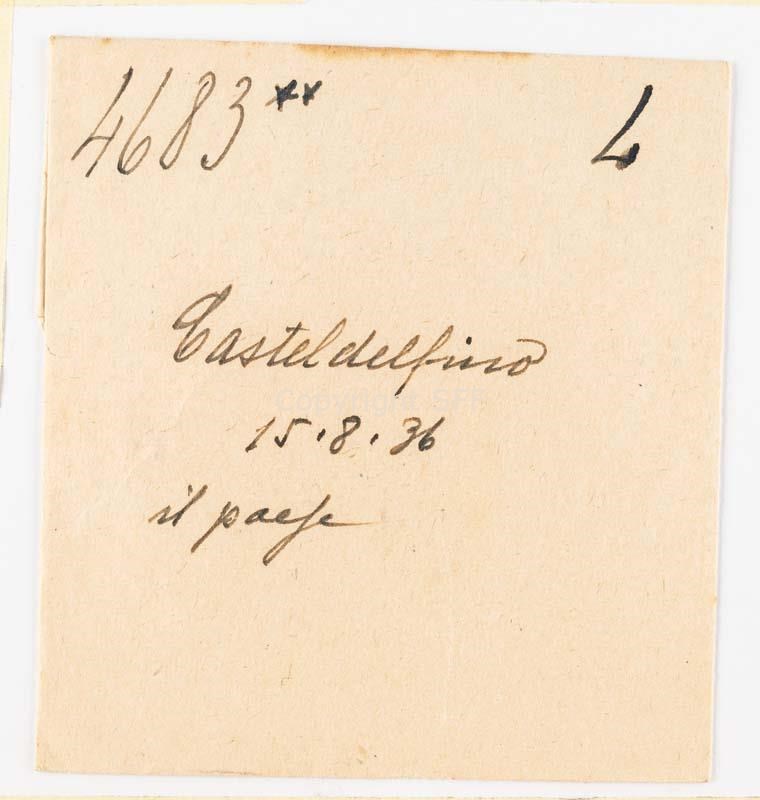 4683** L
Casteldelfino
Copyright SFF
15.8.36
il paese